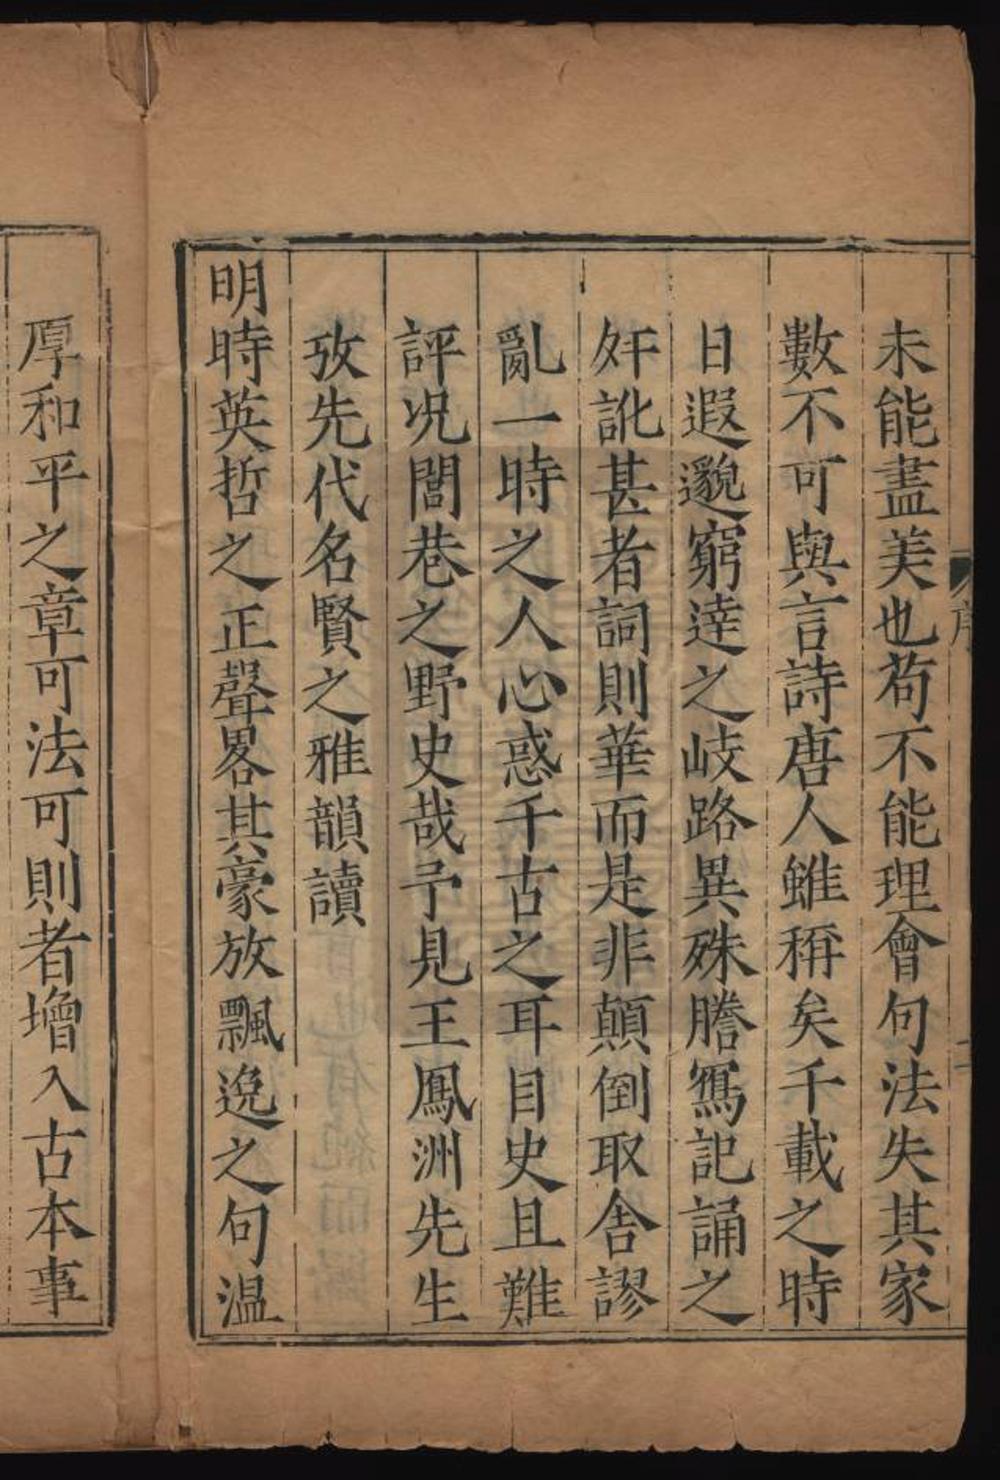 序
二
未能盡美也茍不能理會句法失其家
數不可與言詩唐人雖稱矣千載之時
日遐邈窮達之岐路異殊謄寫記誦之
奸訛甚者詞則華而是非顛倒取舍謬
亂一時之人心惑千古之耳目史且難
評况閭巷之野史哉予見王鳳洲先生
攷先代名賢之雅韻讀
明時英哲之正聲畧其豪放飄逸之句溫
厚和平之章可法可則者增入古本事